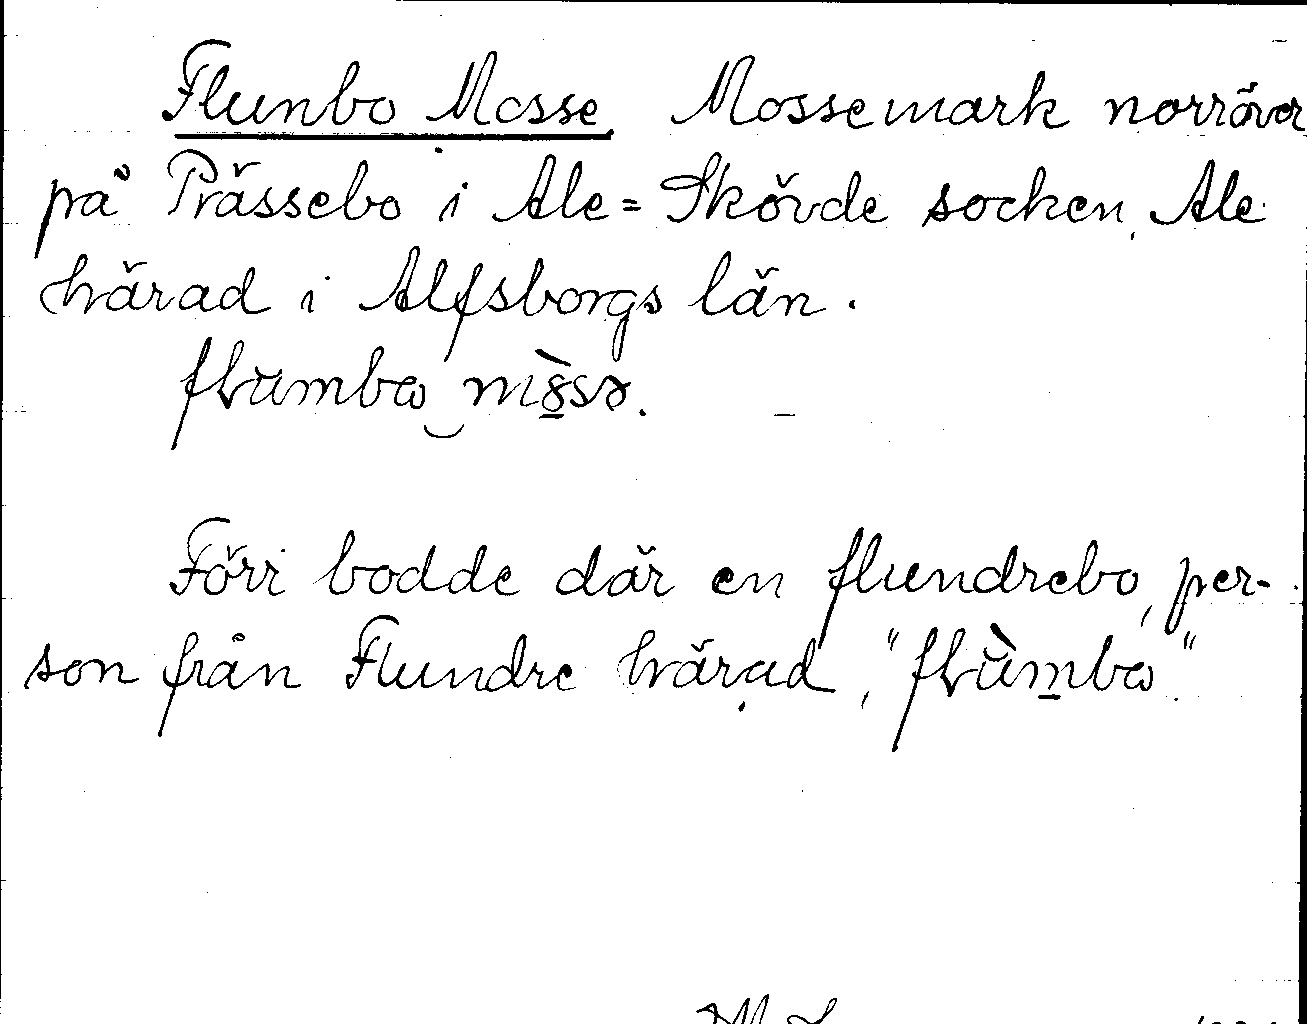 Flunbo Mosse Mossemark norröver
på Prässebo i Ale=Skövde socken, Ale
härad i Alfsborgs län.
flumbɷ mòssə.
Förr bodde där en flundrebo, per-
son från Flundre härad, "flùmbɷ".